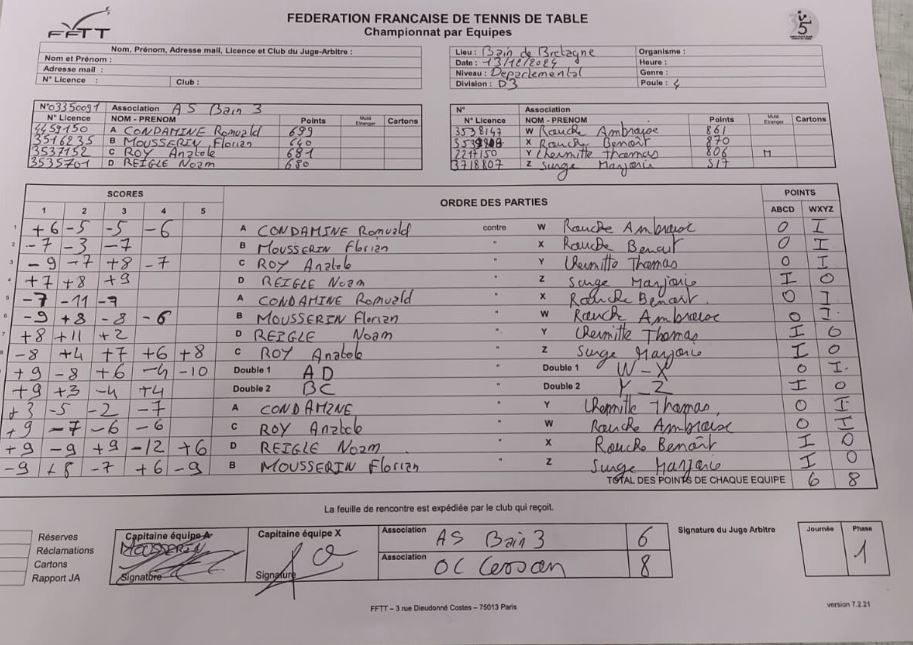 FFTT
FEDERATION FRANCAISE DE TENNIS DE TABLE
Championnat par Equipes
Nom, Prénom, Adresse mail, Licence et Club du Juge-Arbitre :
Nom et Prénom :
Adresse mail :
N° Licence : Club :
Lieu : Bain de Bretagne Organisme :
Date : 13/12/2024 Heure :
Niveau : Departemental Genre :
Division : D3 Poule :
N°03350091 Association AS Bain 3
N° Licence NOM - PRENOM Points Cartons
4459150 A CONDAMINE Romuald 699
3516235 B MOUSSERIN Florian 640
3537152 C ROY Anatole 681
3535701 D REIGLE Noam 680
N° Association
N° Licence NOM - PRENOM Points Cartons
3538147 W Rauche Ambraise 861
X Rauche Benoît 870
2217150 Y Chermitte Thomas 806 M
3718807 Z Surge Marjorie 517
SCORES ORDRE DES PARTIES POINTS
1 2 3 4 5 ABCD WXYZ
1 +6 -5 -5 -6 A CONDAMINE Romuald contre W Rauche Ambraise 0 I
2 -7 -3 -7 B MOUSSERIN Florian " X Rauche Benoît 0 I
3 -9 -7 +8 -7 C ROY Anatole " Y Chermitte Thomas 0 I
4 +7 +8 +9 D REIGLE Noam " Z Surge Marjorie I 0
5 -7 -11 -7 A CONDAMINE Romuald " X Rauche Benoît 0 I
6 -9 +8 -8 -6 B MOUSSERIN Florian " W Rauche Ambraise 0 I
7 +8 +11 +2 D REIGLE Noam " Y Chermitte Thomas I 0
8 -8 +4 +7 +6 +8 C ROY Anatole " Z Surge Marjorie I 0
+9 -8 +6 -4 -10 Double 1 AD " Double 1 W-X 0 I
+9 +3 -4 +4 Double 2 BC " Double 2 Y_Z I 0
+3 -5 -2 -7 A CONDAMINE " Y Chermitte Thomas 0 I
+9 -7 -6 -6 C ROY Anatole " W Rauche Ambraise 0 I
+9 -9 +9 -12 +6 D REIGLE Noam " X Rauche Benoît I 0
-9 +8 -7 +6 -9 B MOUSSERIN Florian " Z Surge Marjorie I 0
TOTAL DES POINTS DE CHAQUE EQUIPE 6 8
La feuille de rencontre est expédiée par le club qui reçoit.
Réserves
Réclamations
Cartons
Rapport JA
Capitaine équipe A
MOUSSERIN
Signature
Capitaine équipe X
Signature
Association AS Bain 3 6
Association OC Cesson 8
Signature du Juge Arbitre
Journée Phase
1
FFTT – 3 rue Dieudonné Costes – 75013 Paris
version 7.2.21